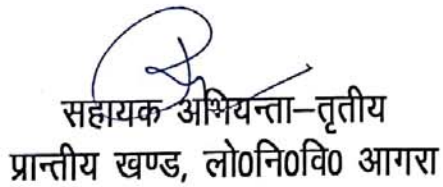 सहायक अभियन्ता–तृतीय
प्रान्तीय खण्ड, लो0नि0वि0 आगरा